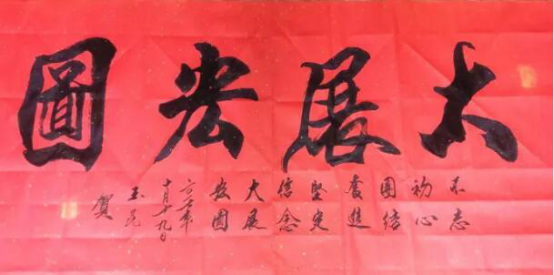 大展宏圖
不忘
初心
團結
奮進
堅定
信念
大展
宏圖
十月十九日
玉民
賀